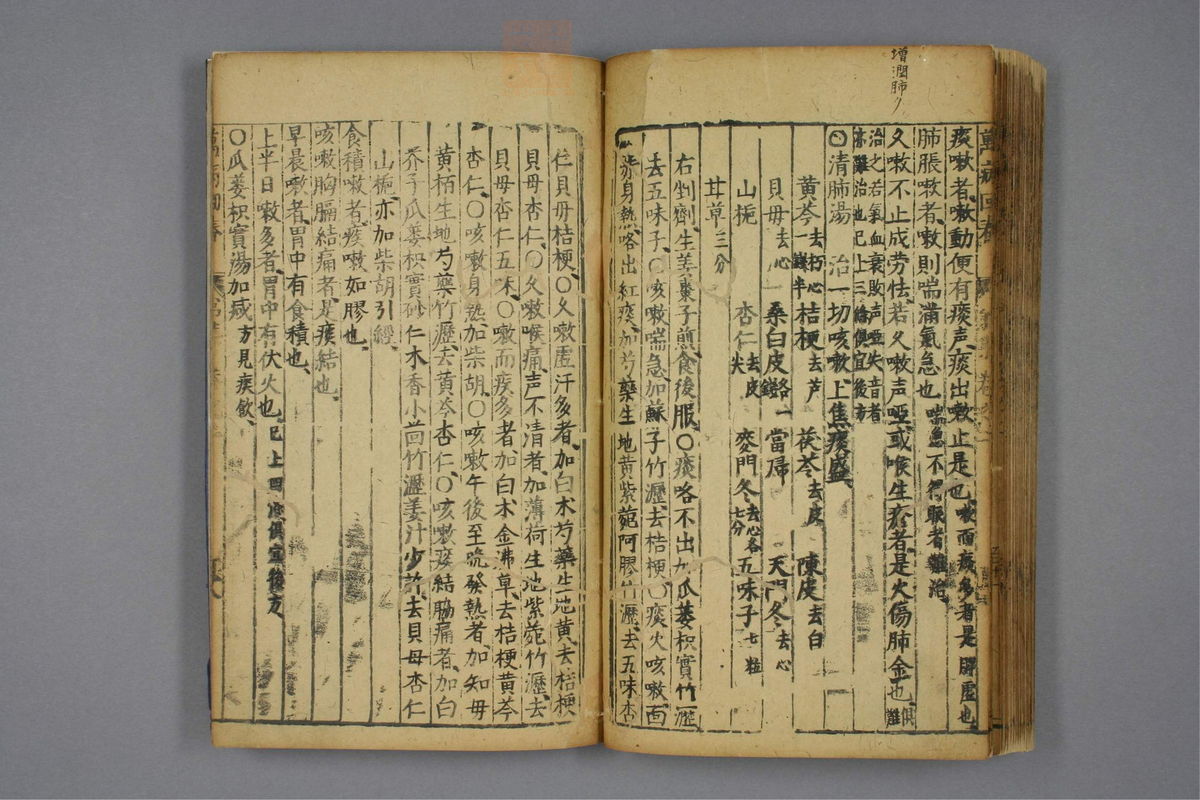 增潤肺
痰嗽者嗽動便有痰声痰出嗽止是也嗽而痰多者是脾虛也
肺脹嗽者嗽則喘滿氣急也喘急不得眠者難治
久嗽不止成劳怯若久嗽声啞或喉生瘡者是火傷肺金也俱難
治之若氣血衰敗声啞失音者
亦難治也已上三條俱宜後方
○清肺湯 治一切咳嗽上焦痰盛
黄芩去朽心一錢半 桔梗去芦 茯苓去皮 陳皮去白
貝母去心 桑白皮各一錢 當㱕 天門冬去心
山梔 杏仁去皮尖 麥門冬去心各七分 五味子七粒
甘草三分
右剉劑生姜棗子煎食後服○痰咯不出加瓜蔞枳實竹瀝
去五味子○咳嗽喘急加蘇子竹瀝去桔梗○痰火咳嗽面
赤身熱咯出紅痰加芍藥生地黄紫菀阿膠竹瀝去五味杏
仁貝母桔梗○久嗽虛汗多者加白朮芍藥生地黄去桔梗
貝母杏仁○久嗽喉痛声不清者加薄荷生地紫菀竹瀝去
貝母杏仁五味○嗽而痰多者加白朮金沸草去桔梗黄芩
杏仁○咳嗽身熱加柴胡○咳嗽午後至晚發熱者加知母
黄栢生地芍藥竹瀝去黄芩杏仁○咳嗽痰結脇痛者加白
芥子瓜蔞枳實砂仁木香小茴竹瀝姜汁少許去貝母杏仁
山梔亦加柴胡引經
食積嗽者痰嗽如膠也
咳嗽胸膈結痛者是痰結也
早晨嗽者胃中有食積也
上半日嗽多者胃中有伏火也已上四條俱宜後方
○瓜蔞枳實湯加減方見痰飲